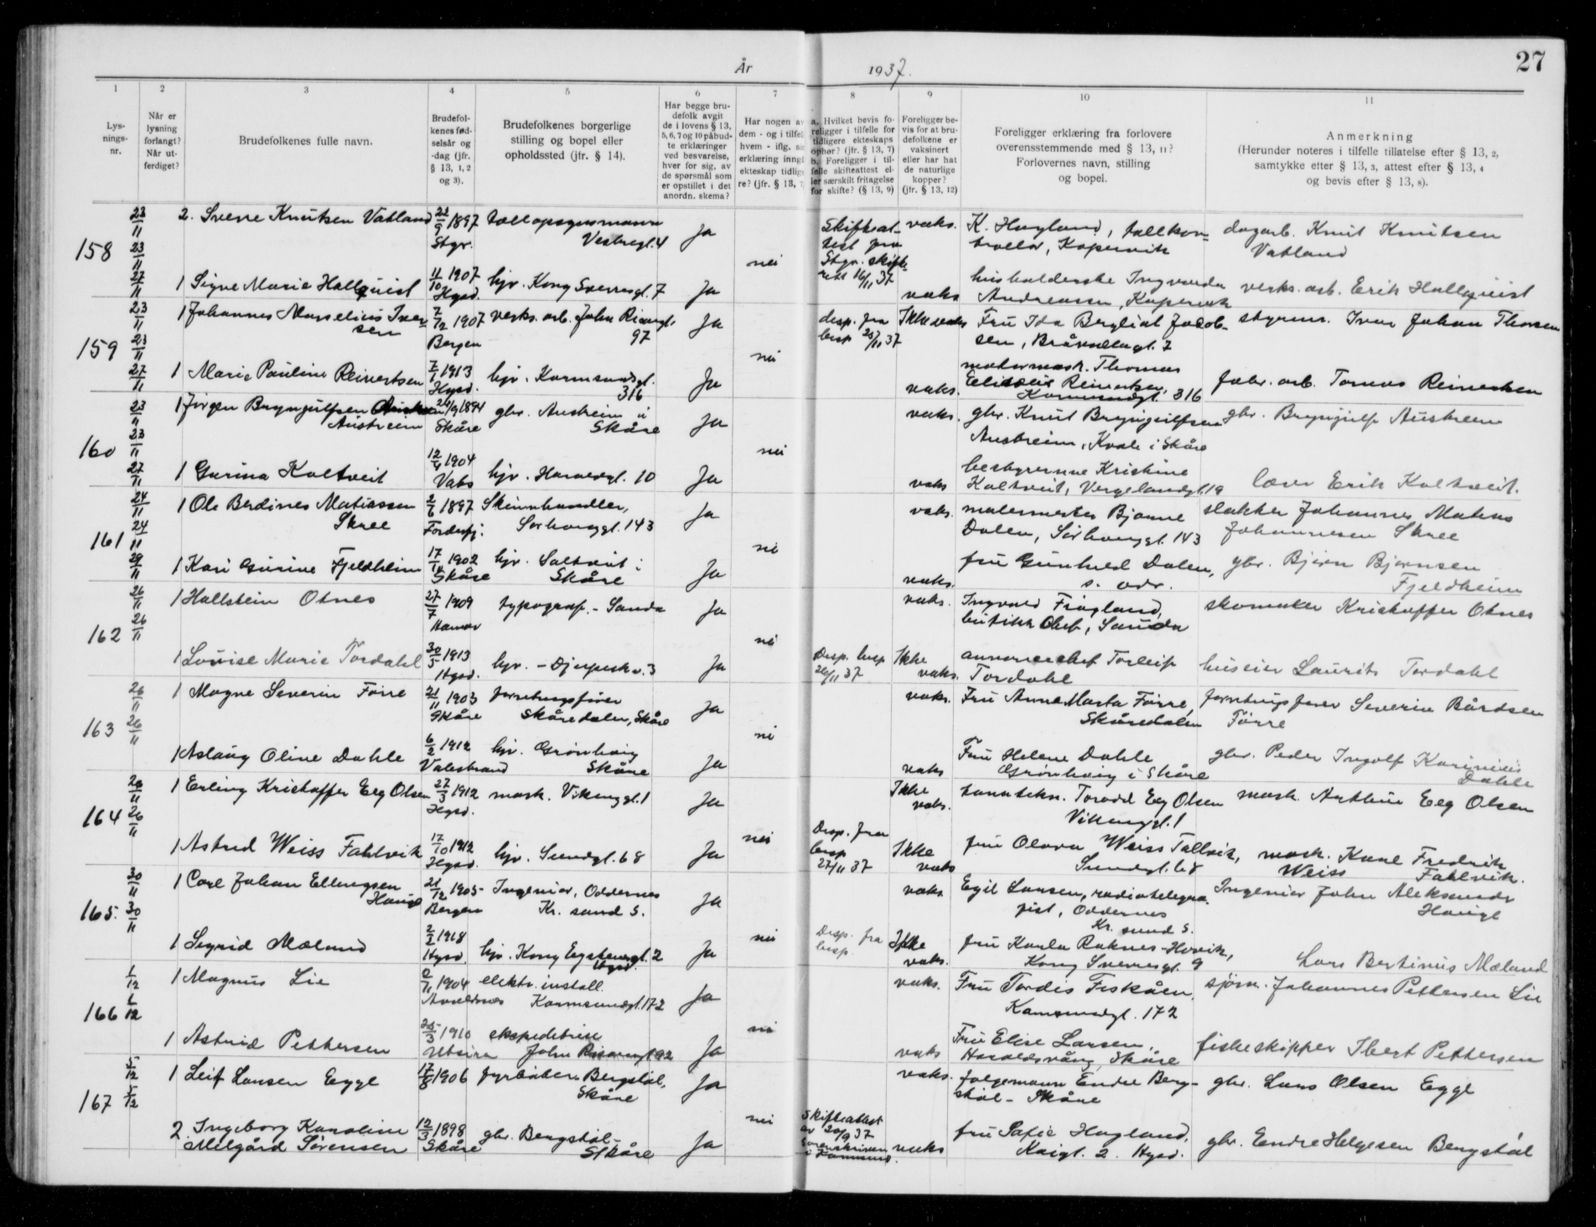 27
År 1937.
1 2 3 4 5 6 7 8 9 10 11
Lys-
nings-
nr.
Når er
lysning
forlangt?
Når ut-
ferdiget?
Brudefolkenes fulle navn.
Brudefol-
kenes fød-
selsår og
-dag (jfr.
§ 13, 1, 2
og 3).
Brudefolkenes borgerlige
stilling og bopel eller
opholdssted (jfr. § 14).
Har begge bru-
defolk avgit
de i lovens § 13,
5, 6, 7 og 10 påbud-
te erklæringer
ved besvarelse,
hver for sig, av
de spørsmål som
er opstillet i det
anordn. skema?
Har nogen av
dem - og i tilfel
hvem - iflg.
erklæring inng
ekteskap tidlig
re? (jfr. § 13,
a. Hvilket bevis fo-
religger i tilfelle for
tidligere ekteskaps
ophør? (jfr. § 13, 7)
b. Foreligger i til-
felle skifteattest el-
ler særskilt fritagelse
for skifte? (§ 13, 9)
Foreligger be-
vis for at bru-
defolkene er
vaksinert
eller har hat
de naturlige
kopper?
(jfr. § 13, 12)
Foreligger erklæring fra forlovere
overensstemmende med § 13, 11?
Forlovernes navn, stilling
og bopel.
Anmerkning
(Herunder noteres i tilfelle tillatelse efter § 13, 2,
samtykke etter § 13, 3, attest efter § 13, 4
og bevis efter § 13, 8).
158 23/11 2. Sverre Knutsen Vatland 1897 Stgr. Vestregt. 4 Ja Skifteat-
test fra
Stgr. skift-
rett 16/11 37 vaks. K. Haugland, tollkon-
trollør, Kopervik dagarb. Knut Knutsen
Vatland
23/11 nei
27/11 1 Signe Marie Hallquist 1907 Hgsd. hjv. Kong Sverresgt. 7 Ja vaks husholderske Ingvarda
Andreassen, Kopervik verks. arb. Erik Hallquist
159 23/11 1 Johannes Marselius Iver-
sen 1907 Bergen verks. arb. John Risøingt.
97 Ja disp. fra
lysp 25/11 37 Ikke vaks Fru Ida Bergliot Jacob-
sen, Bråvallagt. 7 styrm. Ivar Johan Thorsen
23/11 nei
27/11 1 Marie Pauline Reinertsen 1913 Hgsd. hjv. Karmsundgt.
316 Ja vaks. motormask. Thomas
Reinertsen
Karmsundgt. 316 fabr. arb. Tomas Reinertsen
160 23/11 1 Jørgen Brynjulfsen
Austreim 24/9 1894 Skåre gbr. Austreim i
Skåre Ja vaks. gbr. Knut Brynjulfsen
Austreim, Kvale i Skåre gbr. Brynjulf Austreim
23/11 nei
27/11 1 Gurina Koltveit 1904 Vats hjv. Haraldsgt. 10 Ja vaks bestyrerinne Kristine
Koltveit, Vergelandsgt. 19 lærer Erik Koltveit.
161 24/11 1 Ole Berdines Matiassen
Skree 1897 Skinnhandler,
Sørhauggt. 143 Ja vaks. malermester Bjarne
Dalen, Sørhauggt. 143 slakter Johannes Matias
Johannesen Skree
24/11 nei
29/11 1 Kari Gurine Fjeldheim 1902 Skåre hjv. Saltveit i
Skåre Ja vaks. fru Gunhild Dalen,
s. adr. gbr. Bjørn Bjørnsen
Fjeldheim
162 26/11 1 Hallstein Otnes 27/7 1909 Hamar typograf. - Sauda Ja vaks. Ingvald Fisgland,
butikk, Sauda skomaker Kristoffer Otnes
26/11 nei
1 Lovise Marie Tordahl 30/5 1913 Hgsd. hjv. - Djupaskv. 3 Ja Disp. lysp
26/11 37 Ikke
vaks. annonsechef Torleif
Tordahl huseier Laurits Tordahl
163 26/11 1 Magne Severin Førre 21/11 1903 Skåre forretningsfører
Skåredalen, Skåre Ja vaks. Fru Anna Marta Førre,
Skåredalen forretningsfører Severin Bårdsen
Førre
26/11 nei
1 Aslaug Oline Dahle 6/2 1912 Valestrand hjv. Grønhaug
Skåre Ja vaks Fru Helene Dahle
Grønhaug i Skåre gbr. Peder Ingolf
Dahle
164 26/11 1 Erling Kristoffer Eeg Olsen 27/3 1912 Hgsd. mask. Vikinggt. 1 Ja Ikke
vaks. tanntekn. Toralf Eeg Olsen
Vikinggt. 1 mask. Arthur Eeg Olsen
26/11 nei
1 Astrid Weiss Fahlvik 17/10 1912 Hgsd. hjv. Sundgt. 68 Ja Disp. fra
lysp
27/11 37 Ikke
vaks fru Olava Weiss Fallvik,
Sundgt. 68 mask. Karl Fredrik
Weiss Fahlvik.
165. 30/11 1 Carl Johan Ellingsen
Hauge 21/12 1905 Bergen Ingeniør, Oddernes
Kr. sand S. Ja vaks Egil Larsen, radiotelegra-
fist, Oddernes
Kr. sand S. Ingeniør John Aleksander
Hauge
30/11 nei
1 Sigrid Mæland 2/2 1918 Hgsd hjv. Kong Eysteinsgt. 2
Hgsd. Ja Disp. fra
lysp. Ikke
vaks. fru Karla Raknes-Hervik,
Kong Sverresgt. 9 Lars Bertinus Mæland
166 1/12 1 Magnus Lie 2/11 1904 elektr. install.
Karmsundgt. 172 Ja vaks. Fru Tordis Fiskåen,
Karmsundgt. 172 sjøm. Johannes Pettersen Lie
1/12 nei
1 Astrid Pettersen 25/3 1910 Utsira ekspeditrise
John Risøingt. 92 Ja vaks Fru Elise Larsen,
Haraldsvang Skåre fiskeskipper Ibert Pettersen
167 5/12 1 Leif Larsen Egge 17/8 1906 fyrbøter Bergstøl,
Skåre Ja vaks. følgemann Endre Berg-
støl - Skåre gbr. Lars Olsen Egge
5/12 nei
2 Ingeborg Karoline
Melgård Sørensen 12/3 1898 Skåre gbr. Bergstøl -
Skåre Ja Skifteattest
av 20/9 37
Sorenskriveren
i Karmsund. vaks fru Sofie Haugland,
Kaigt. 2. Hgsd. gbr. Endre Helgesen Bergstøl